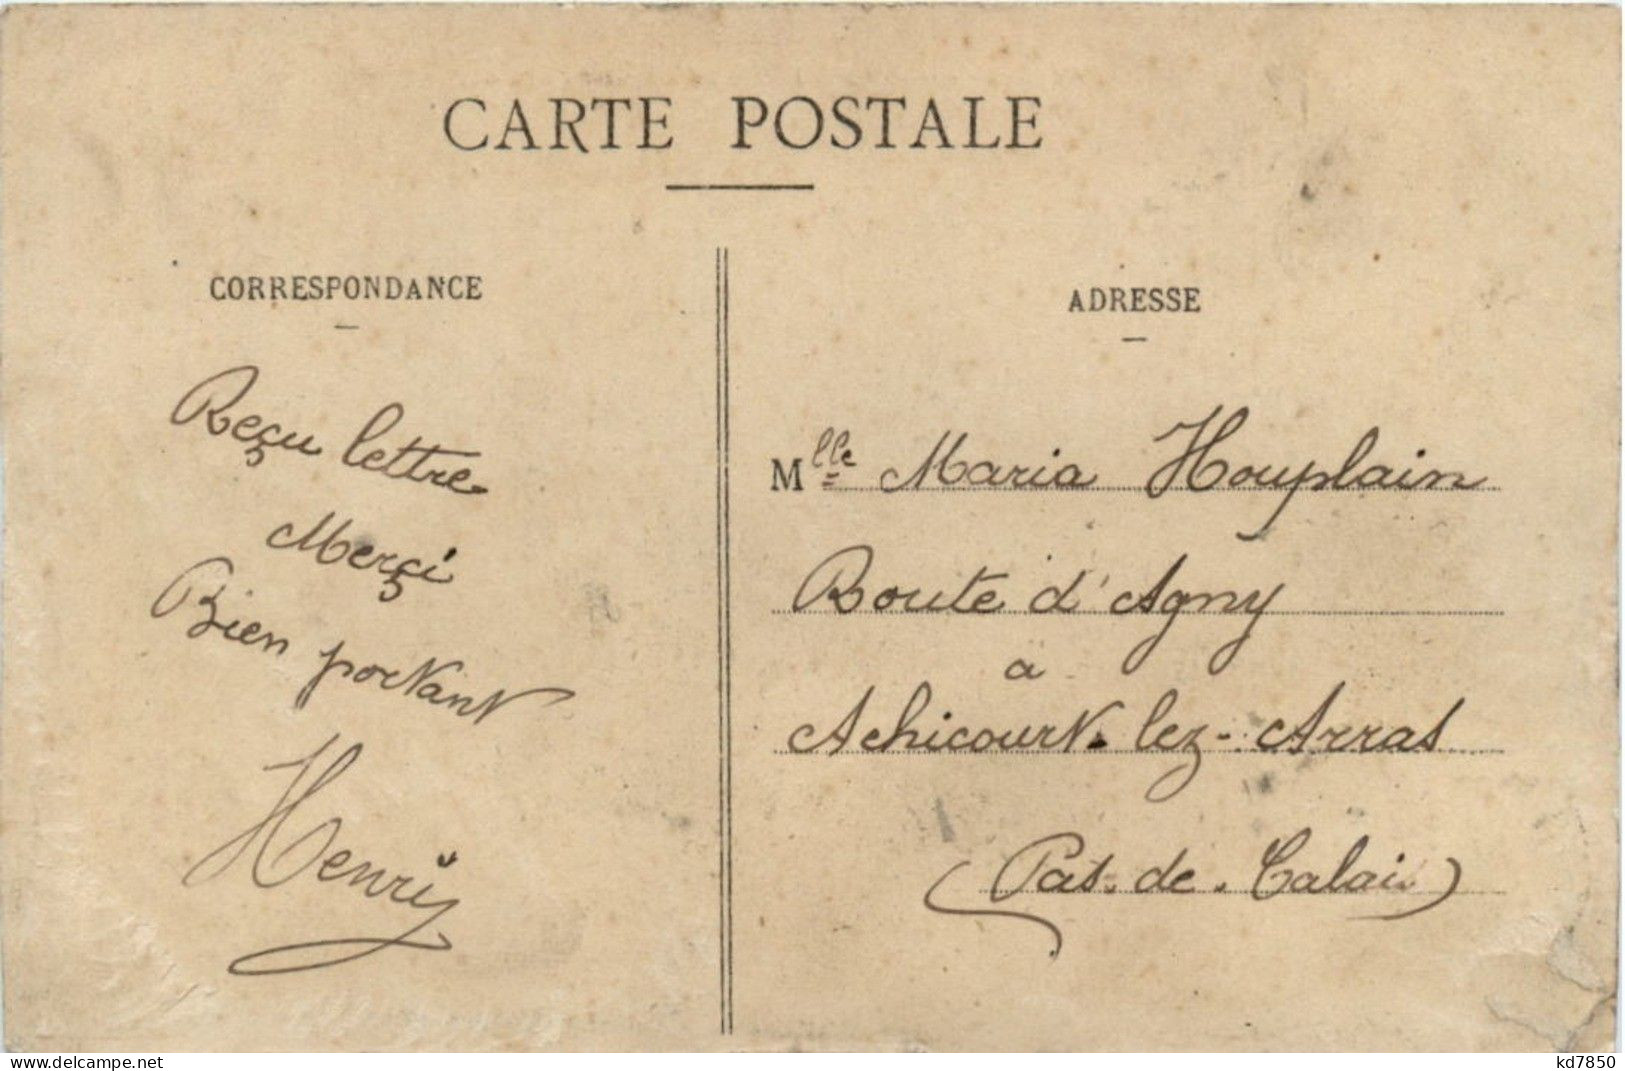 CARTE POSTALE
CORRESPONDANCE
Reçu lettre
Merçi
Bien portant
Henry
ADRESSE
Mlle Maria Houplain
Route d'Agny
a
Achicourt-lez-Arras
(Pas-de-Calais)
www.delcampe.net
kd7850